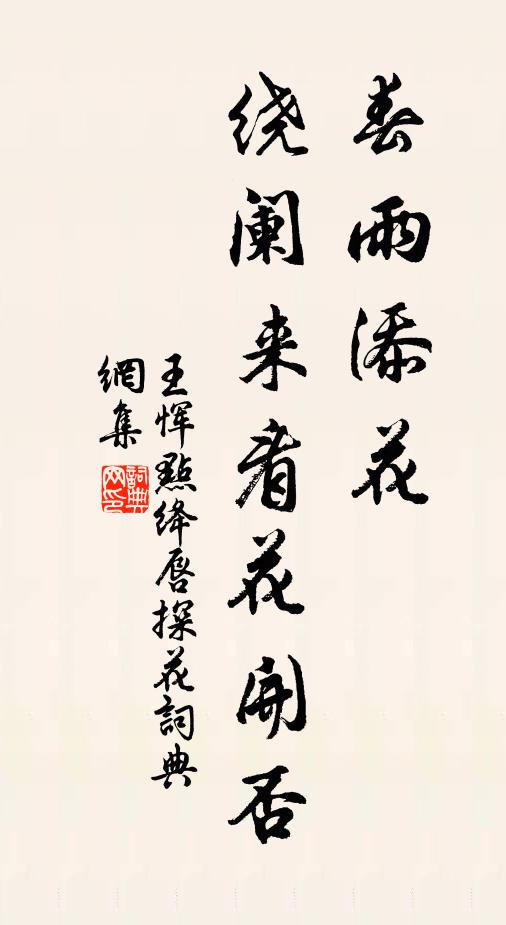 春雨添花
绕阑来看花开否
王恽點绛唇探花詞典
網集
詞典网印